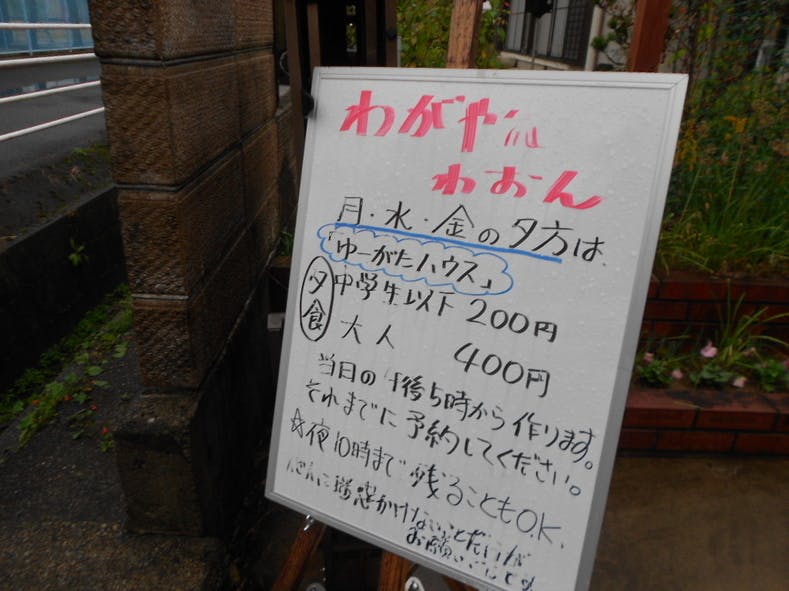 わがや
わおん
月・水・金の夕方は、
「ゆーがたハウス」
夕食
中学生以下 200円
大人 400円
当日の午後5時から作ります。
それまでに予約してください。
☆夜10時まで残ることもO.K.
に迷惑かけないことだけが
お願い